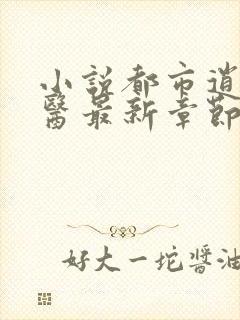 小說都市逍
醫最新章節
好大一坨醬油